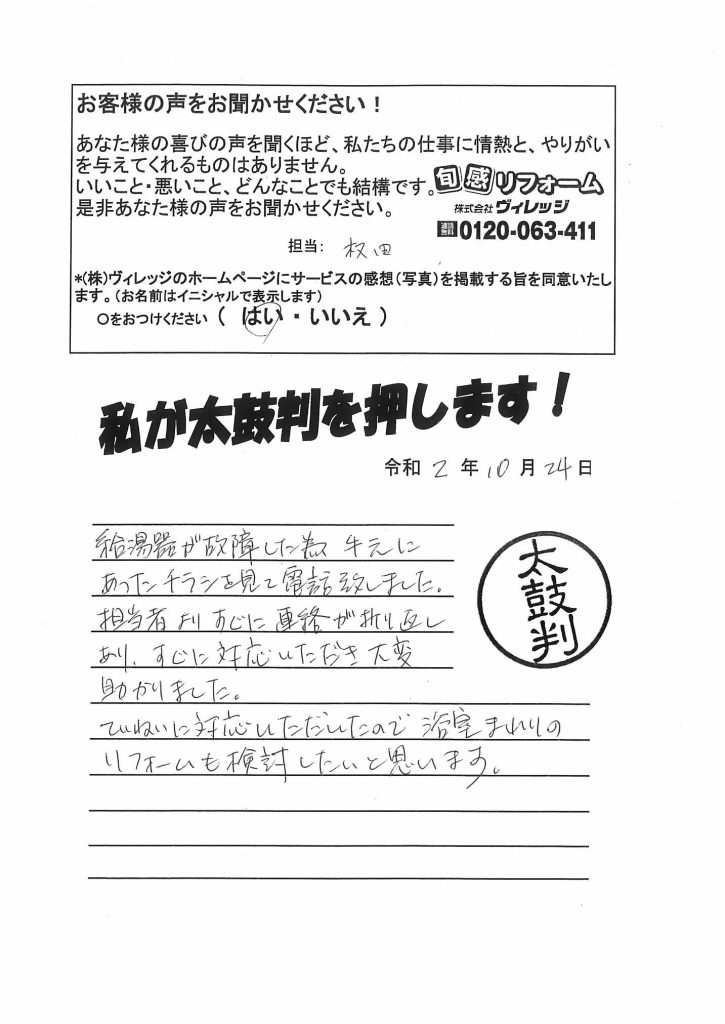 お客様の声をお聞かせください！
あなた様の喜びの声を聞くほど、私たちの仕事に情熱と、やりがい
を与えてくれるものはありません。
いいこと・悪いこと、どんなことでも結構です。
是非あなた様の声をお聞かせください。
旬感リフォーム
株式会社ヴィレッジ
通話無料0120-063-411
担当： 権田
*(株)ヴィレッジのホームページにサービスの感想（写真）を掲載する旨を同意いたし
ます。（お名前はイニシャルで表示します）
○をおつけください（ はい・いいえ ）
私が太鼓判を押します！
令和 2 年 10 月 24 日
給湯器が故障した為 手元に
あったチラシを見て電話致しました。
担当者よりすぐに連絡が折り返し
あり、すぐに対応いただき大変
助かりました。
ていねいに対応いただいたので浴室まわりの
リフォームも検討したいと思います。
太鼓判